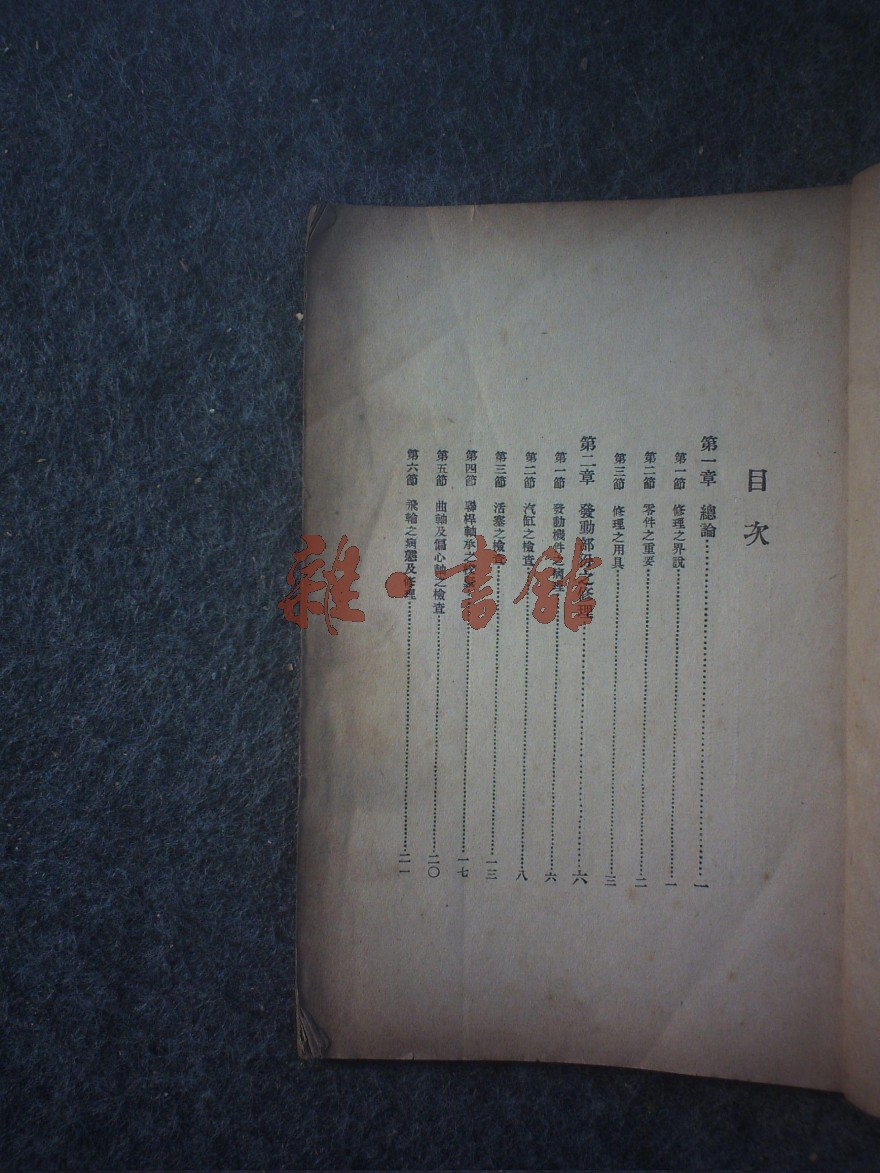 目次
第一章 總論……一
第一節 修理之界說……一
第二節 零件之重要……二
第三節 修理之用具……三
第二章 發動部份之修理……六
第一節 發動機件之病理……六
第二節 汽缸之檢查……八
第三節 活塞之檢查……一三
第四節 聯桿軸承之……一七
第五節 曲軸及偏心軸之檢查……二〇
第六節 飛輪之病態及修理……二一
雜·書館